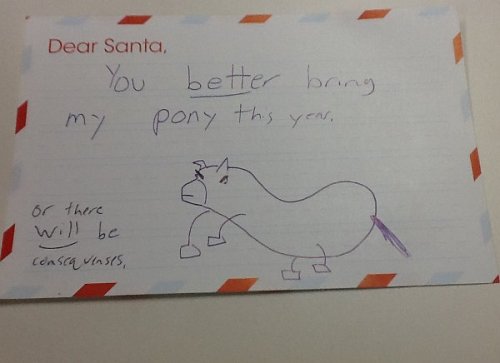 Dear Santa,
You better bring
my pony this year.
or there
will be
consequenses.